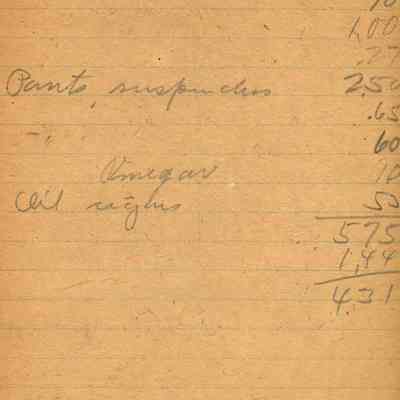 10
1.00
.27
Pants, suspenders 2.50
.65
" 60
Vinegar 10
Oil 50
5 75
1.44
4.31